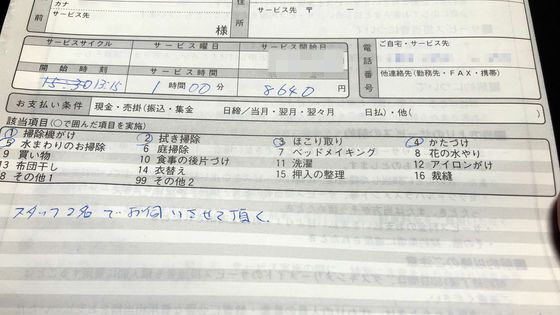 カナ
サービス先
前
様
住所
サービス先 〒 ー
サービスサイクル サービス曜日 サービス開始日
開始時刻 サービス時間
15:30 13:15 1 時間 00 分 8640 円
電話番号
ご自宅・サービス先
他連絡先(勤務先・FAX・携帯)
お支払い条件 現金・売掛(振込・集金 日締/当月・翌月・翌々月 日払)・他(
該当項目(○で囲んだ項目を実施)
1 掃除機がけ 2 拭き掃除 3 ほこり取り 4 かたづけ
5 水まわりのお掃除 6 庭掃除 7 ベッドメイキング 8 花の水やり
9 買い物 10 食事の後片づけ 11 洗濯 12 アイロンがけ
13 布団干し 14 衣替え 15 押入の整理 16 裁縫
8 その他1 99 その他2
スタッフ2名でお伺いさせて頂く.